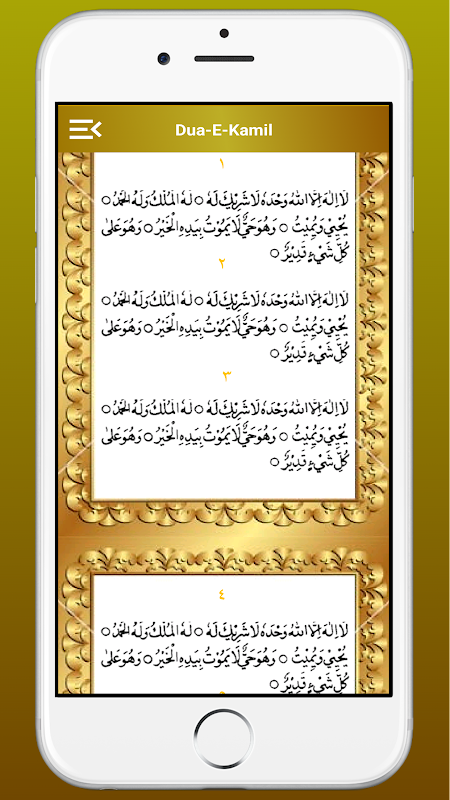 Dua-E-Kamil
١
لَا اِلٰهَ اِلَّا اللّٰهُ وَحْدَهٗ لَا شَرِيْكَ لَهٗ ○ لَهُ الْمُلْكُ وَلَهُ الْحَمْدُ ○
يُحْيِيْ وَيُمِيْتُ ○ وَهُوَ حَيٌّ لَّا يَمُوْتُ بِيَدِهِ الْخَيْرُ ○ وَهُوَ عَلٰى
كُلِّ شَيْءٍ قَدِيْرٌ ○
٢
لَا اِلٰهَ اِلَّا اللّٰهُ وَحْدَهٗ لَا شَرِيْكَ لَهٗ ○ لَهُ الْمُلْكُ وَلَهُ الْحَمْدُ ○
يُحْيِيْ وَيُمِيْتُ ○ وَهُوَ حَيٌّ لَّا يَمُوْتُ بِيَدِهِ الْخَيْرُ ○ وَهُوَ عَلٰى
كُلِّ شَيْءٍ قَدِيْرٌ ○
٣
لَا اِلٰهَ اِلَّا اللّٰهُ وَحْدَهٗ لَا شَرِيْكَ لَهٗ ○ لَهُ الْمُلْكُ وَلَهُ الْحَمْدُ ○
يُحْيِيْ وَيُمِيْتُ ○ وَهُوَ حَيٌّ لَّا يَمُوْتُ بِيَدِهِ الْخَيْرُ ○ وَهُوَ عَلٰى
كُلِّ شَيْءٍ قَدِيْرٌ ○
٤
لَا اِلٰهَ اِلَّا اللّٰهُ وَحْدَهٗ لَا شَرِيْكَ لَهٗ ○ لَهُ الْمُلْكُ وَلَهُ الْحَمْدُ ○
يُحْيِيْ وَيُمِيْتُ ○ وَهُوَ حَيٌّ لَّا يَمُوْتُ بِيَدِهِ الْخَيْرُ ○ وَهُوَ عَلٰى
كُلِّ شَيْءٍ قَدِيْرٌ ○